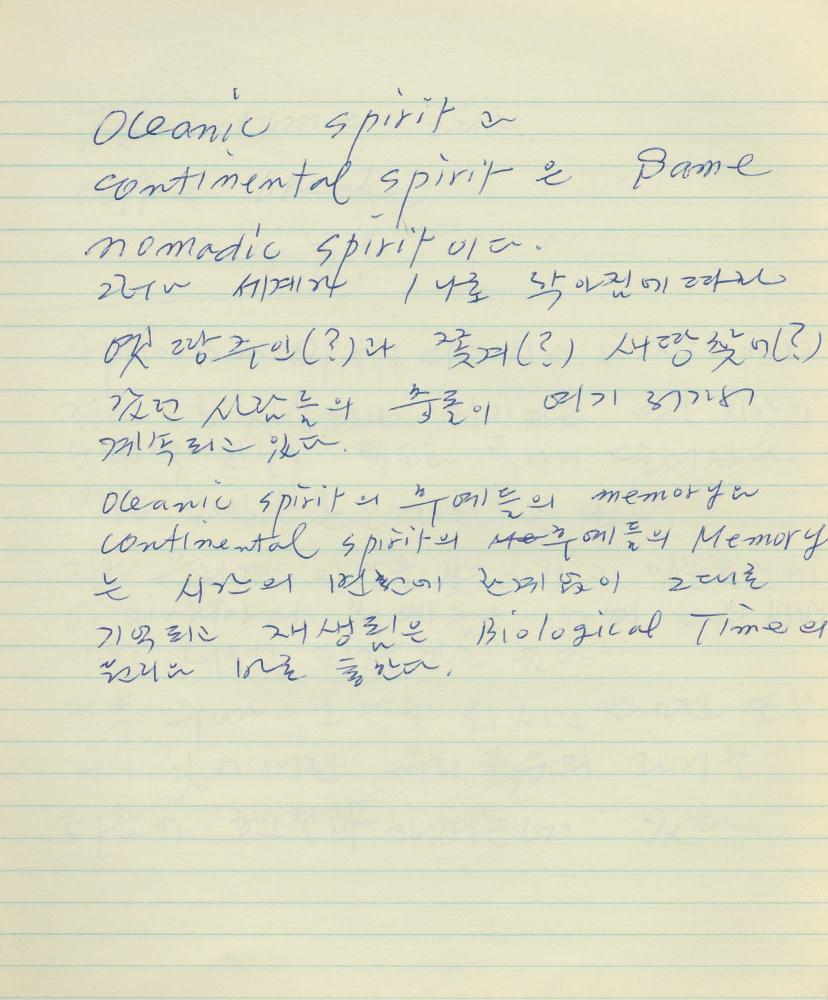 Oceanic spirit과
continental spirit은 Same
nomadic spirit이다.
그러나 세계가 하나로 작아짐에 따라
옛 땅주인(?)과 쫓겨(?) 새땅찾어(?)
갔던 사람들의 충돌이 여기 저기서
계속되고 있다.
Oceanic spirit의 후예들의 memory와
continental spirit의 후예들의 Memory
는 시간의 변천에 관계없이 그대로
기억되고 재생됨은 Biological Time의
원리와 바로 통한다.